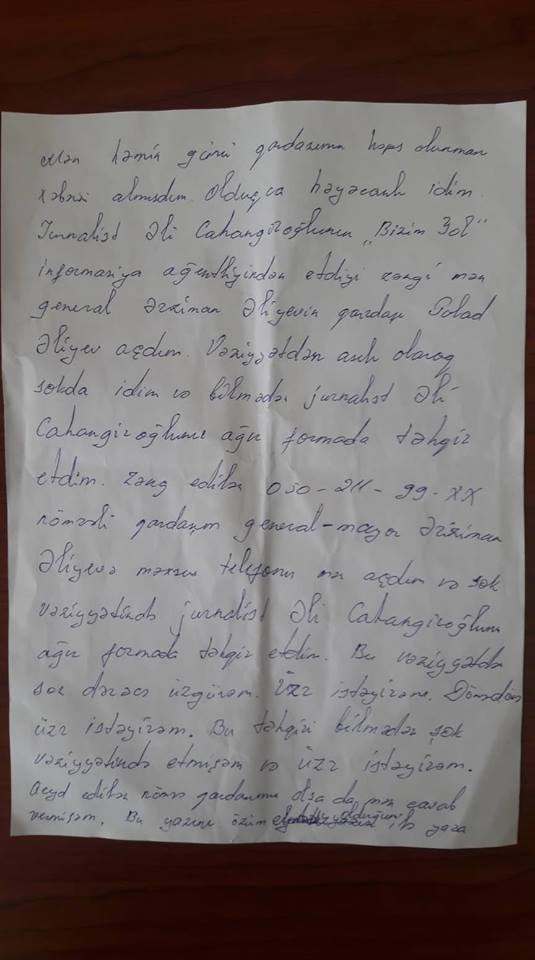 Mən həmin günü qardaşımın həps olunman
xəbəri almışdım. Olduqca həyəcanlı idim.
Jurnalist Əli Cahangiroğlunun "Bizim Yol"
informasiya agentliyindən etdiyi zəngi mən
general Ərzinan Əliyevin qardaşı Polad
Əliyev açdım. Vəziyyətdən asılı olaraq
şokda idim və bilmədən jurnalist Əli
Cahangiroğlunu ağır formada təhqir
etdim. Zəng edilən 050-211-99-XX
nömrəli qardaşım general-mayor Ərzinan
Əliyevə məxsus telefonu mən açdım və şok
vəziyyətində jurnalist Əli Cahangiroğlunu
ağır formada təhqir etdim. Bu vəziyyətdən
son dərəcə üzgünəm. Üzr istəyirəm. Dönədönə
üzr istəyirəm. Bu təhqiri bilmədən şok
vəziyyətində etmişəm və üzr istəyirəm.
Qeyd edilən nömrə qardaşımın olsa da mən cavab
vermişəm. Bu yazını özüm